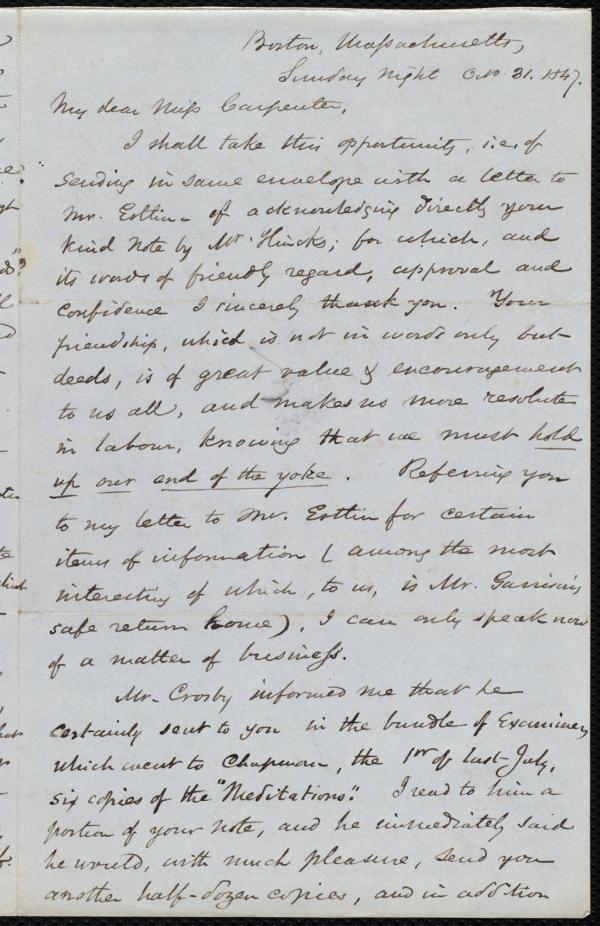 Boston, Massachusetts,
Sunday night Oct. 31. 1847.
My dear Miss Carpenter,
I shall take this opportunity, i.e. of
sending in same envelope with a letter to
Mr. Estlin - of acknowledging directly your
kind note by Mr. Hincks; for which, and
its words of friendly regard, approval and
confidence I sincerely thank you. Your
friendship, which is not in words only but
deeds, is of great value & encouragement
to us all, and makes us more resolute
in labour, knowing that we must hold
up our end of the yoke. Referring you
to my letter to Mr. Estlin for certain
items of information (among the most
interesting of which, to us, is Mr. Garrison's
safe return home), I can only speak now
of a matter of business.
Mr. Crosby informed me that he
certainly sent to you in the bundle of Examiners
which went to Chapman, the 1st of last July,
six copies of the "Meditations." I read to him a
portion of your note, and he immediately said
he would, with much pleasure, send you
another half-dozen copies, and in addition